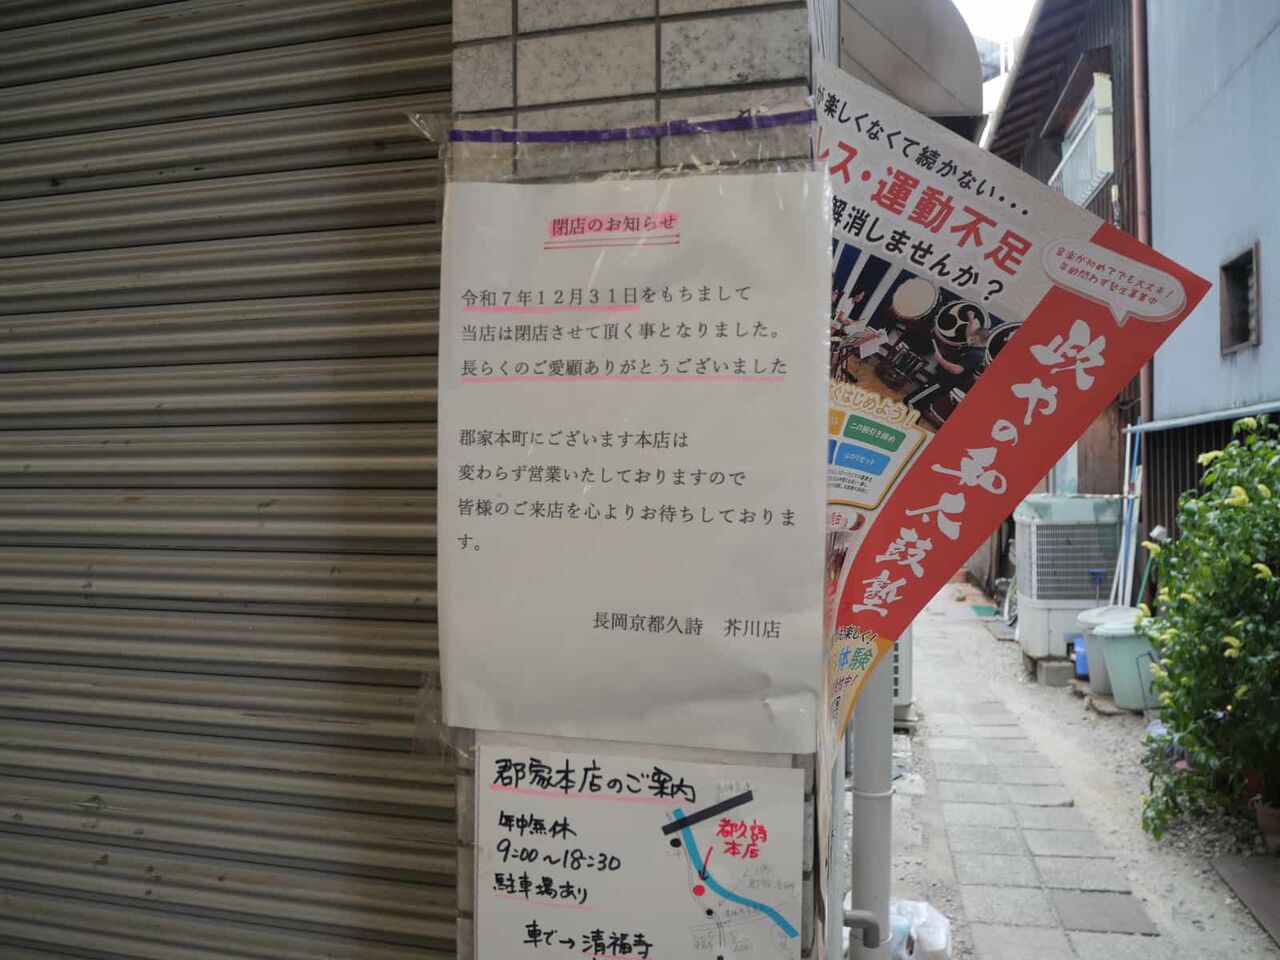 閉店のお知らせ
令和７年１２月３１日をもちまして
当店は閉店させて頂く事となりました。
長らくのご愛顧ありがとうございました
郡家本町にございます本店は
変わらず営業いたしておりますので
皆様のご来店を心よりお待ちしておりま
す。
長岡京都久詩　芥川店
郡家本店のご案内
年中無休
9:00〜18:30
駐車場あり
車で→清福寺
都久詩
本店
が楽しくなくて続かない...
レス・運動不足
解消しませんか？
音楽が初めてでも大丈夫！
年齢問わず塾生募集中
政やの和太鼓塾
はじめよう！
二の腕引き締め
心のリセット
も楽しく！
体験